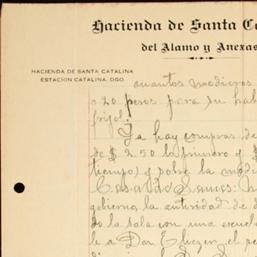 Hacienda de Santa Ca
del Alamo y Anexas
HACIENDA DE SANTA CATALINA
ESTACION CATALINA, DGO.
cuantos medieros
o 20 pesos para su
frijol.
Ya hay compras de
de $ 2.50 la primera y $
tiempo) y sobre la
gobierno, la autoridad de
de la sala con una escuel
le a Don Eliezer el pe